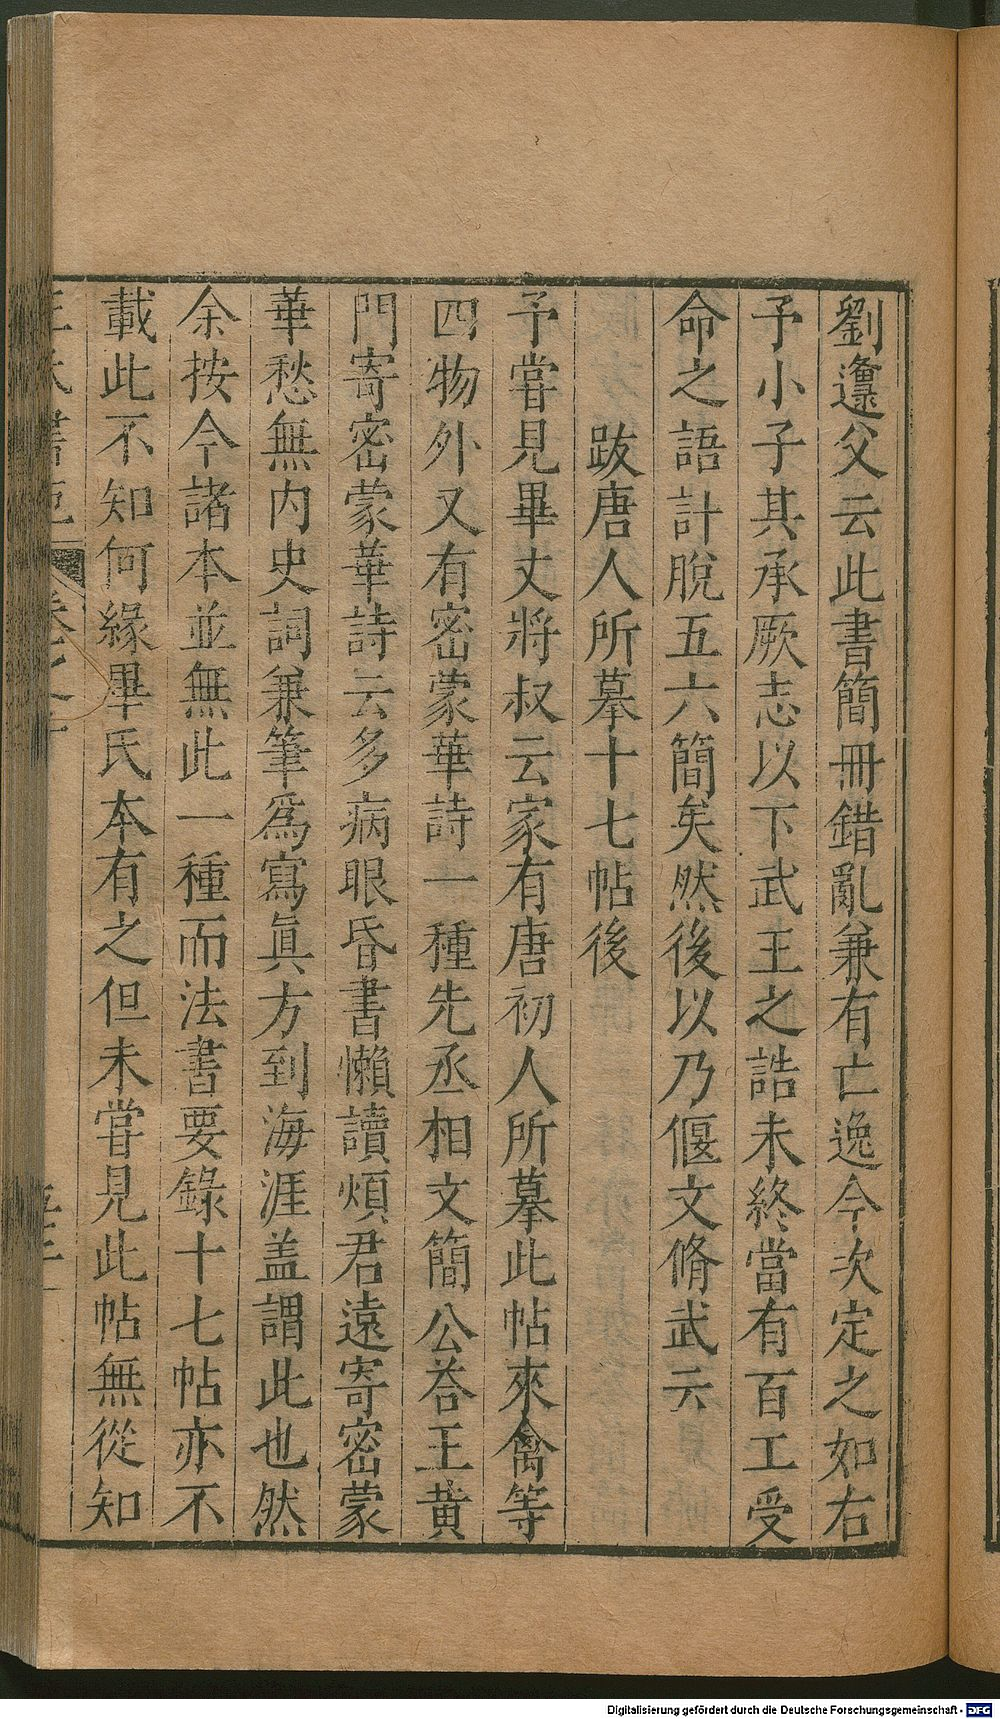 劉邍父云此書簡冊錯亂兼有亡逸今次定之如右
予小子其承厥志以下武王之誥未終當有百工受
命之語計脫五六簡矣然後以乃偃文脩武云
跋唐人所摹十七帖後
予嘗見畢丈將叔云家有唐初人所摹此帖來禽等
四物外又有密蒙華詩一種先丞相文簡公荅王黃
門寄密蒙華詩云多病眼昏書懶讀煩君遠寄密蒙
華愁無內史詞兼筆爲寫眞方到海涯盖謂此也然
余按今諸本並無此一種而法書要錄十七帖亦不
載此不知何緣畢氏本有之但未嘗見此帖無從知
Digitalisierung gefördert durch die Deutsche Forschungsgemeinschaft - DFG